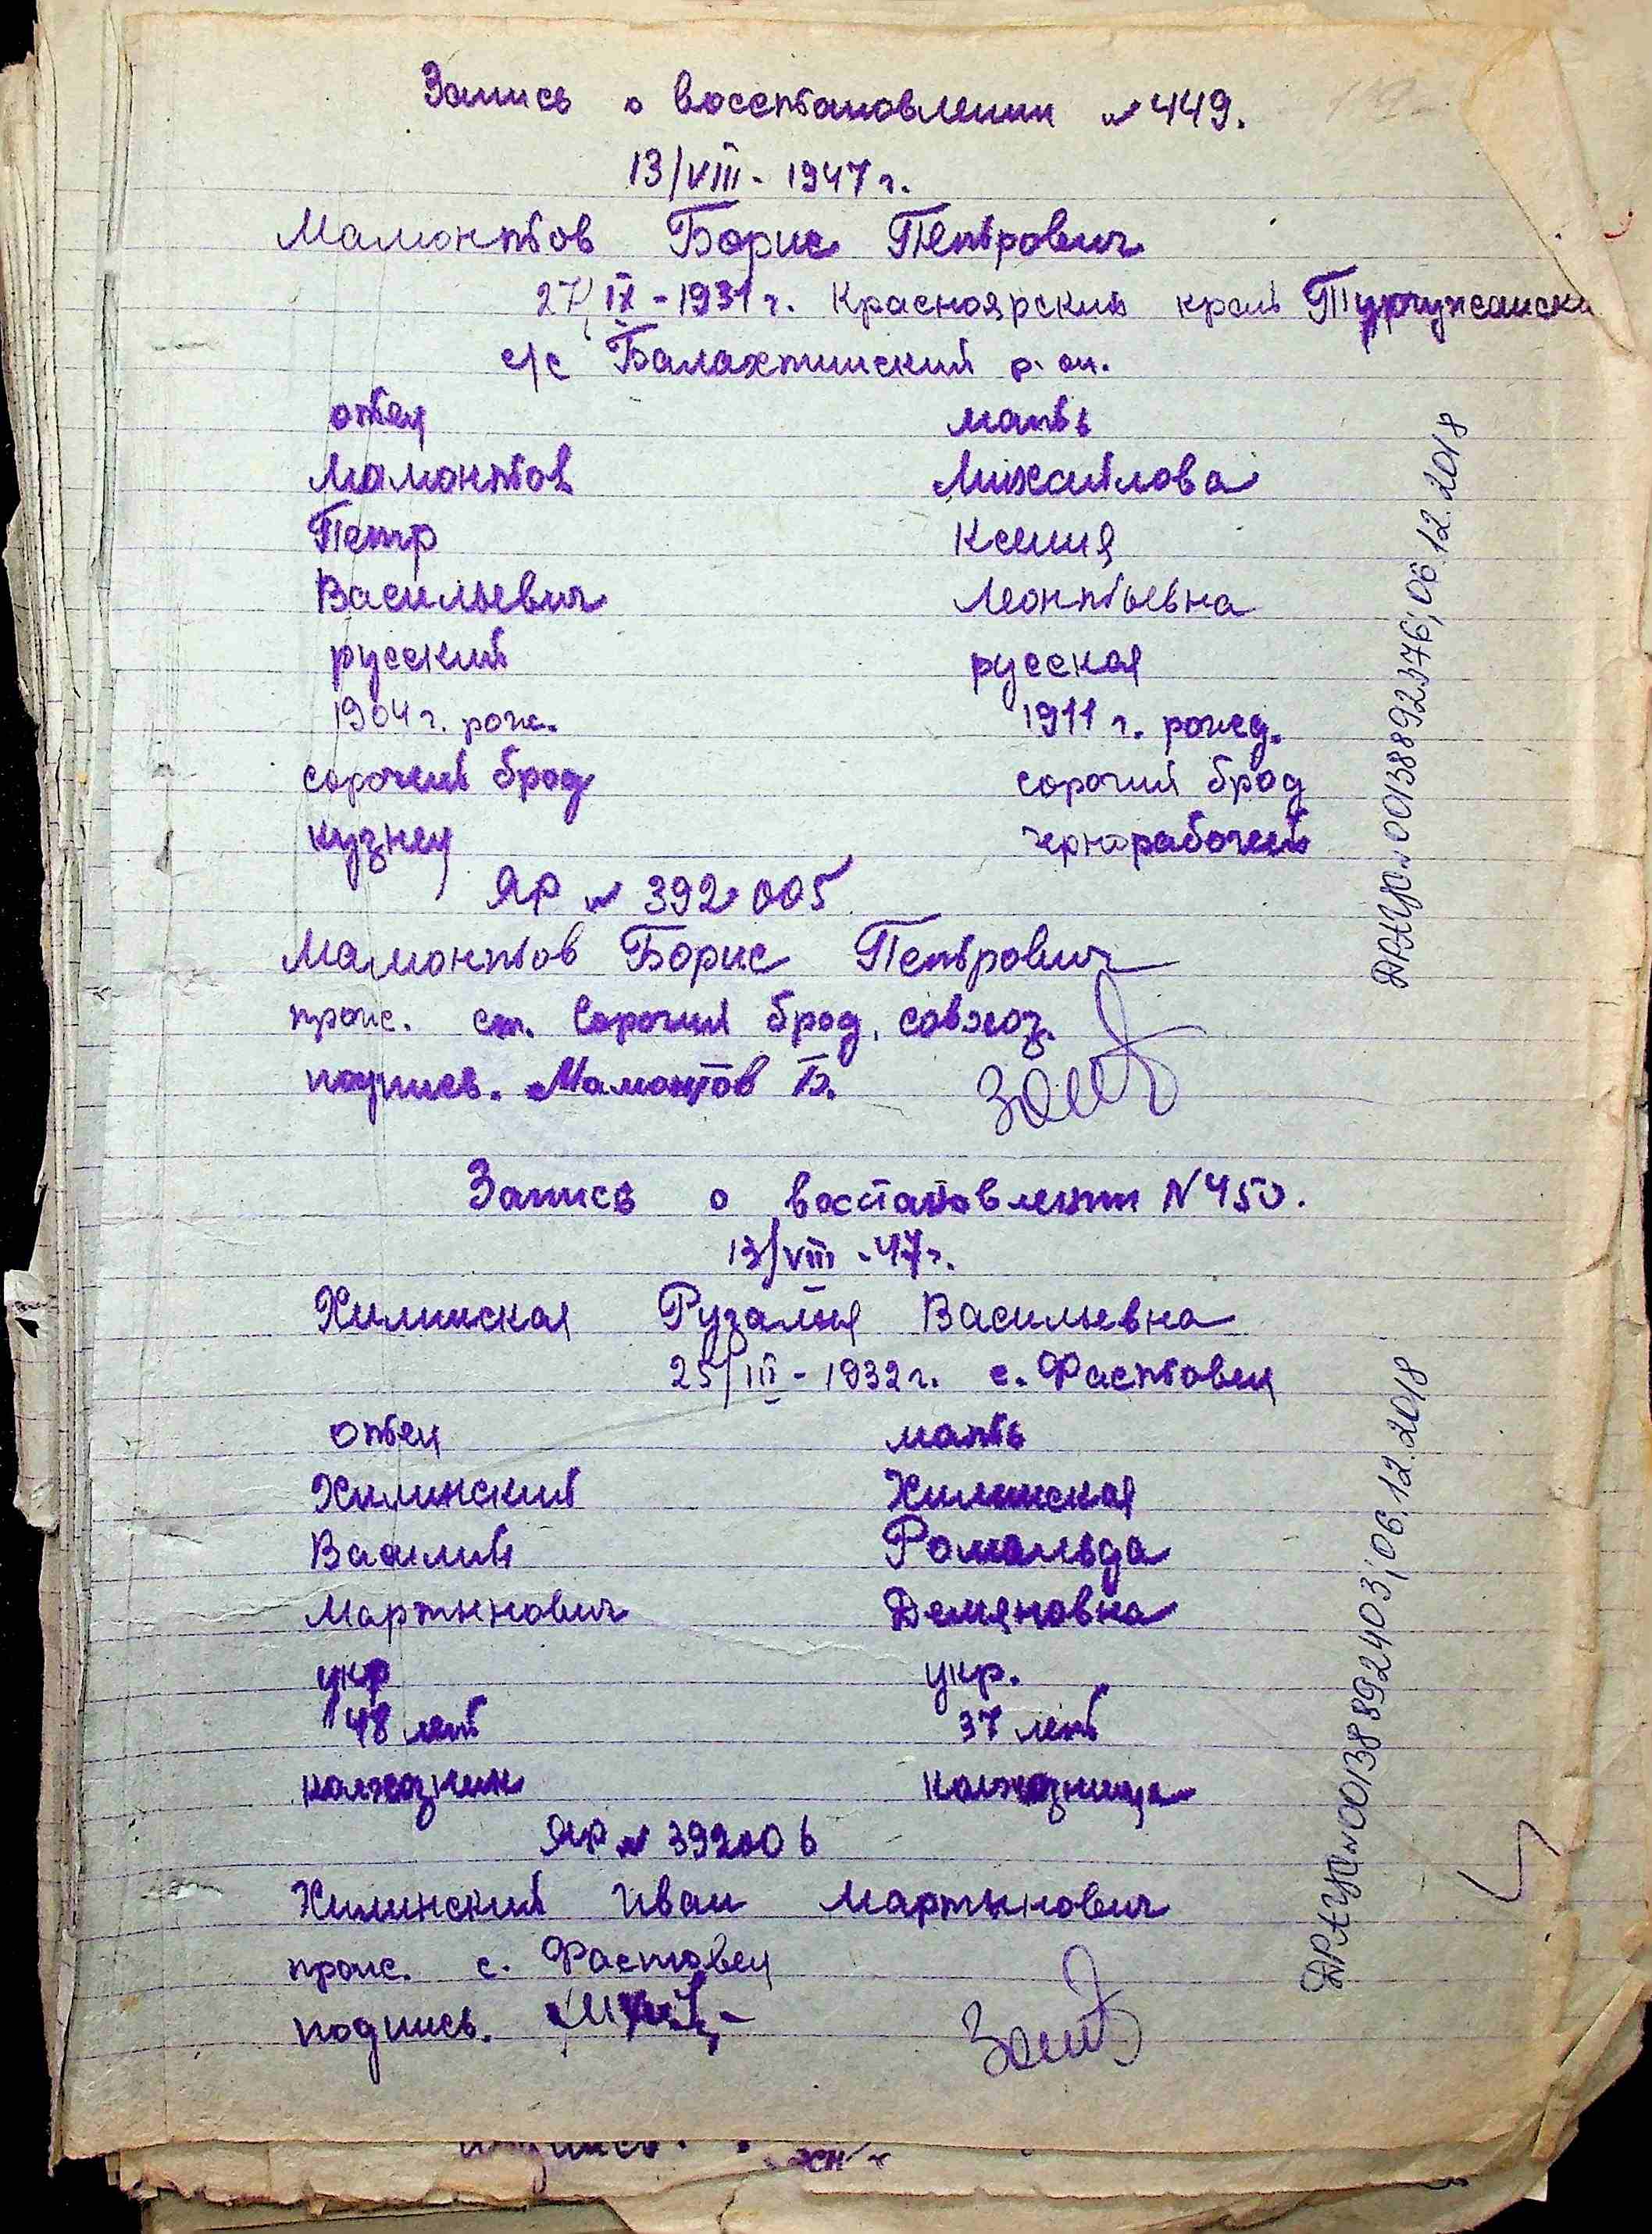 Запись о восстановлении № 449.
13/VIII - 1947 г.
Мамонтов Борис Петрович
27/IX - 1931 г. Красноярский край
с/с Балахтинский р. он.
отец мать
Мамонтов Михайлова
Петр Ксения
Васильевич Леонтьевна
русский русская
1904 г. рож. 1911 г. рожд.
сорочий брод сорочий брод
кузнец чернорабочей
ЯР № 392005
Мамонтов Борис Петрович
прож. ст. Сорочий брод, совхоз.
подпись. Мамонтов Б.
Запись о востановлении N 450.
13/VIII - 47 г.
Хилинская Рузалия Васильевна
25/III - 1932 г. с. Фастовец
отец мать
Хилинский Хилинская
Василий Ромальда
Мартынович Демяновна
укр укр.
48 лет 37 лет
колхозник колхозница
ЯР № 392006
Хилинский Иван Мартынович
прож. с. Фастовец
подпись.
ДРАЦР №00138892376; 06.12.2018
ДРАЦР №00138892403; 06.12.2018